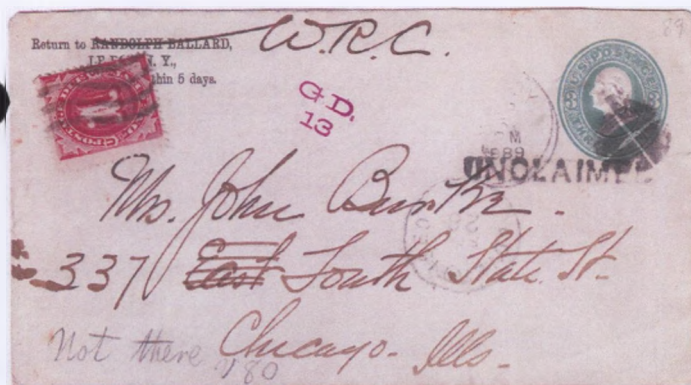 Return to RANDOLPH BALLARD,
N. Y.,
thin 5 days.
W.R.C.
89
G.D.
13
U.S. POSTAGE
M
UNCLAIMED
Mrs. John Burke.
337 East South State St.
Chicago. Ills.
Not there